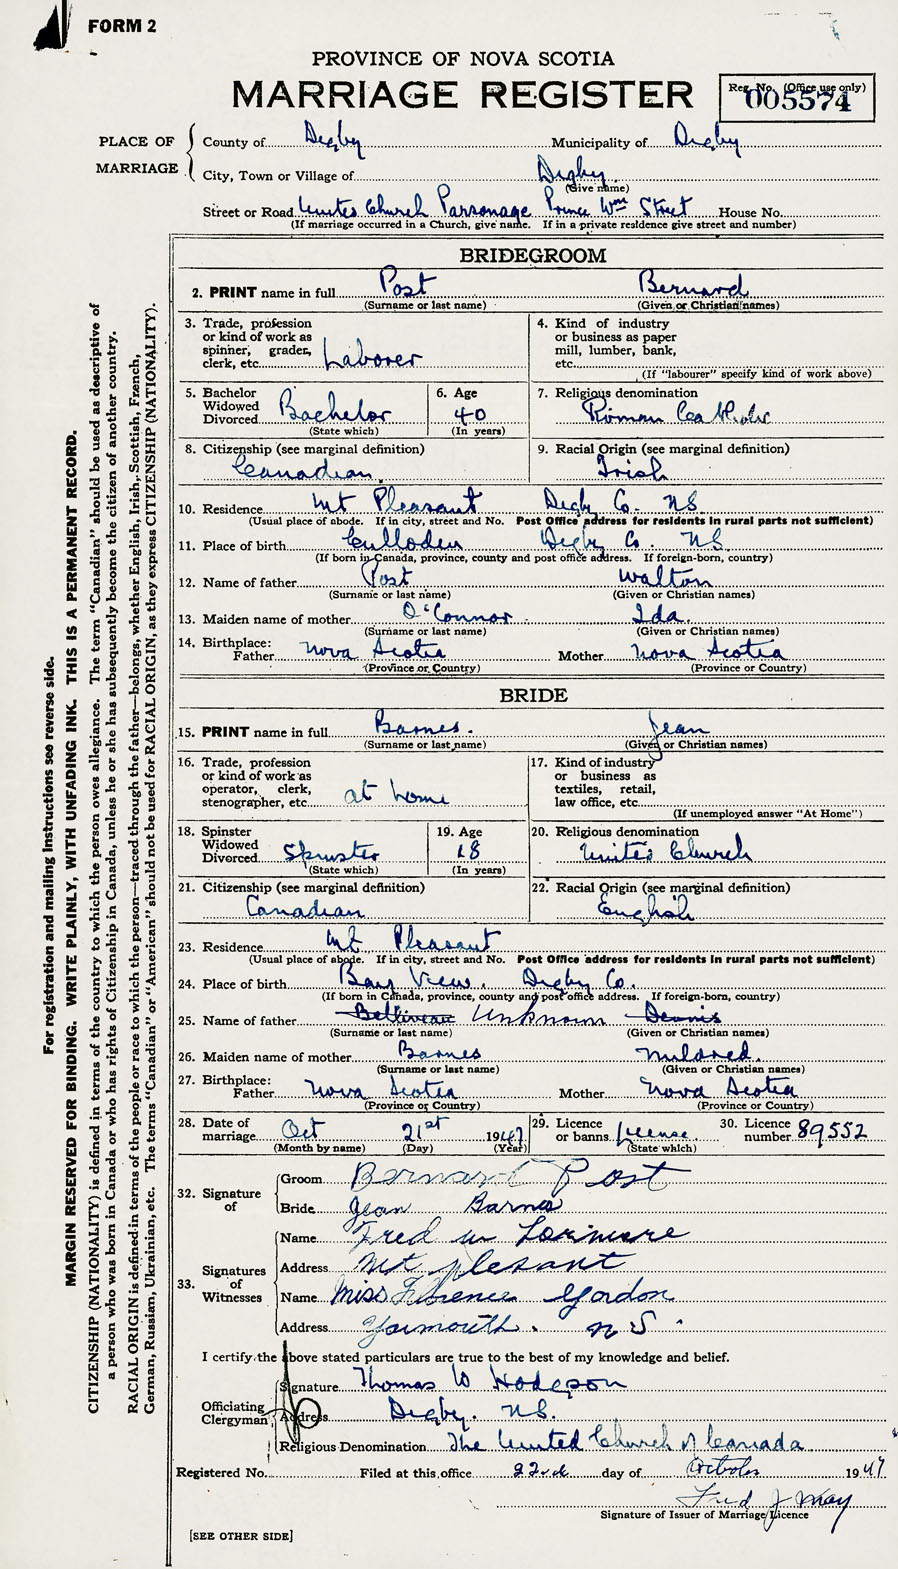 FORM 2
PROVINCE OF NOVA SCOTIA
MARRIAGE REGISTER
Reg. No. (Office use only)
005574
PLACE OF MARRIAGE
County of Digby Municipality of Digby
City, Town or Village of Digby
(Give name)
Street or Road United Church Parsonage Prince Wm Street House No.
(If marriage occurred in a Church, give name. If in a private residence give street and number)
BRIDEGROOM
2. PRINT name in full Post Bernard
(Surname or last name) (Given or Christian names)
3. Trade, profession 4. Kind of industry
or kind of work as or business as paper
spinner, grader, mill, lumber, bank,
clerk, etc. Laborer etc.
(If "labourer" specify kind of work above)
5. Bachelor 6. Age 7. Religious denomination
Widowed
Divorced Bachelor 40 Roman Catholic
(State which) (In years)
8. Citizenship (see marginal definition) 9. Racial Origin (see marginal definition)
Canadian Irish
10. Residence Mt Pleasant Digby Co. NS
(Usual place of abode. If in city, street and No. Post Office address for residents in rural parts not sufficient)
11. Place of birth Culloden Digby Co. NS
(If born in Canada, province, county and post office address. If foreign-born, country)
12. Name of father Post Walton
(Surname or last name) (Given or Christian names)
13. Maiden name of mother O'Connor Ida.
(Surname or last name) (Given or Christian names)
14. Birthplace:
Father Nova Scotia Mother Nova Scotia
(Province or Country) (Province or Country)
BRIDE
15. PRINT name in full Barnes. Jean
(Surname or last name) (Given or Christian names)
16. Trade, profession 17. Kind of industry
or kind of work as or business as
operator, clerk, textiles, retail,
stenographer, etc. at home law office, etc.
(If unemployed answer "At Home")
18. Spinster 19. Age 20. Religious denomination
Widowed
Divorced Spinster 18 United Church
(State which) (In years)
21. Citizenship (see marginal definition) 22. Racial Origin (see marginal definition)
Canadian English
23. Residence Mt Pleasant
(Usual place of abode. If in city, street and No. Post Office address for residents in rural parts not sufficient)
24. Place of birth Bay View. Digby Co.
(If born in Canada, province, county and post office address. If foreign-born, country)
25. Name of father Belliveau Unknown Dennis
(Surname or last name) (Given or Christian names)
26. Maiden name of mother Barnes Mildred.
(Surname or last name) (Given or Christian names)
27. Birthplace:
Father Nova Scotia Mother Nova Scotia
(Province or Country) (Province or Country)
28. Date of marriage Oct 21st 1947 29. Licence or banns License 30. Licence number 89552
(Month by name) (Day) (Year) (State which)
32. Signature of
Groom Bernard Post
Bride Jean Barnes
33. Signatures of Witnesses
Name Fred W Lorimore
Address Mt plesant
Name Miss Florence Gordon
Address Yarmouth. N S.
I certify the above stated particulars are true to the best of my knowledge and belief.
Officiating Clergyman
Signature Thomas W Hodgson
Address Digby. NS.
Religious Denomination The United Church of Canada
Registered No. Filed at this office 22nd day of October 1947
Fred J May
Signature of Issuer of Marriage Licence
[SEE OTHER SIDE]
For registration and mailing instructions see reverse side.
MARGIN RESERVED FOR BINDING. WRITE PLAINLY, WITH UNFADING INK. THIS IS A PERMANENT RECORD.
CITIZENSHIP (NATIONALITY) is defined in terms of the country to which the person owes allegiance. The term "Canadian" should be used as descriptive of
a person who was born in Canada or who has rights of Citizenship in Canada, unless he or she has subsequently become the citizen of another country.
RACIAL ORIGIN is defined in terms of the people or race to which the person—traced through the father—belongs, whether English, Irish, Scottish, French,
German, Russian, Ukrainian, etc. The terms "Canadian" or "American" should not be used for RACIAL ORIGIN, as they express CITIZENSHIP (NATIONALITY).